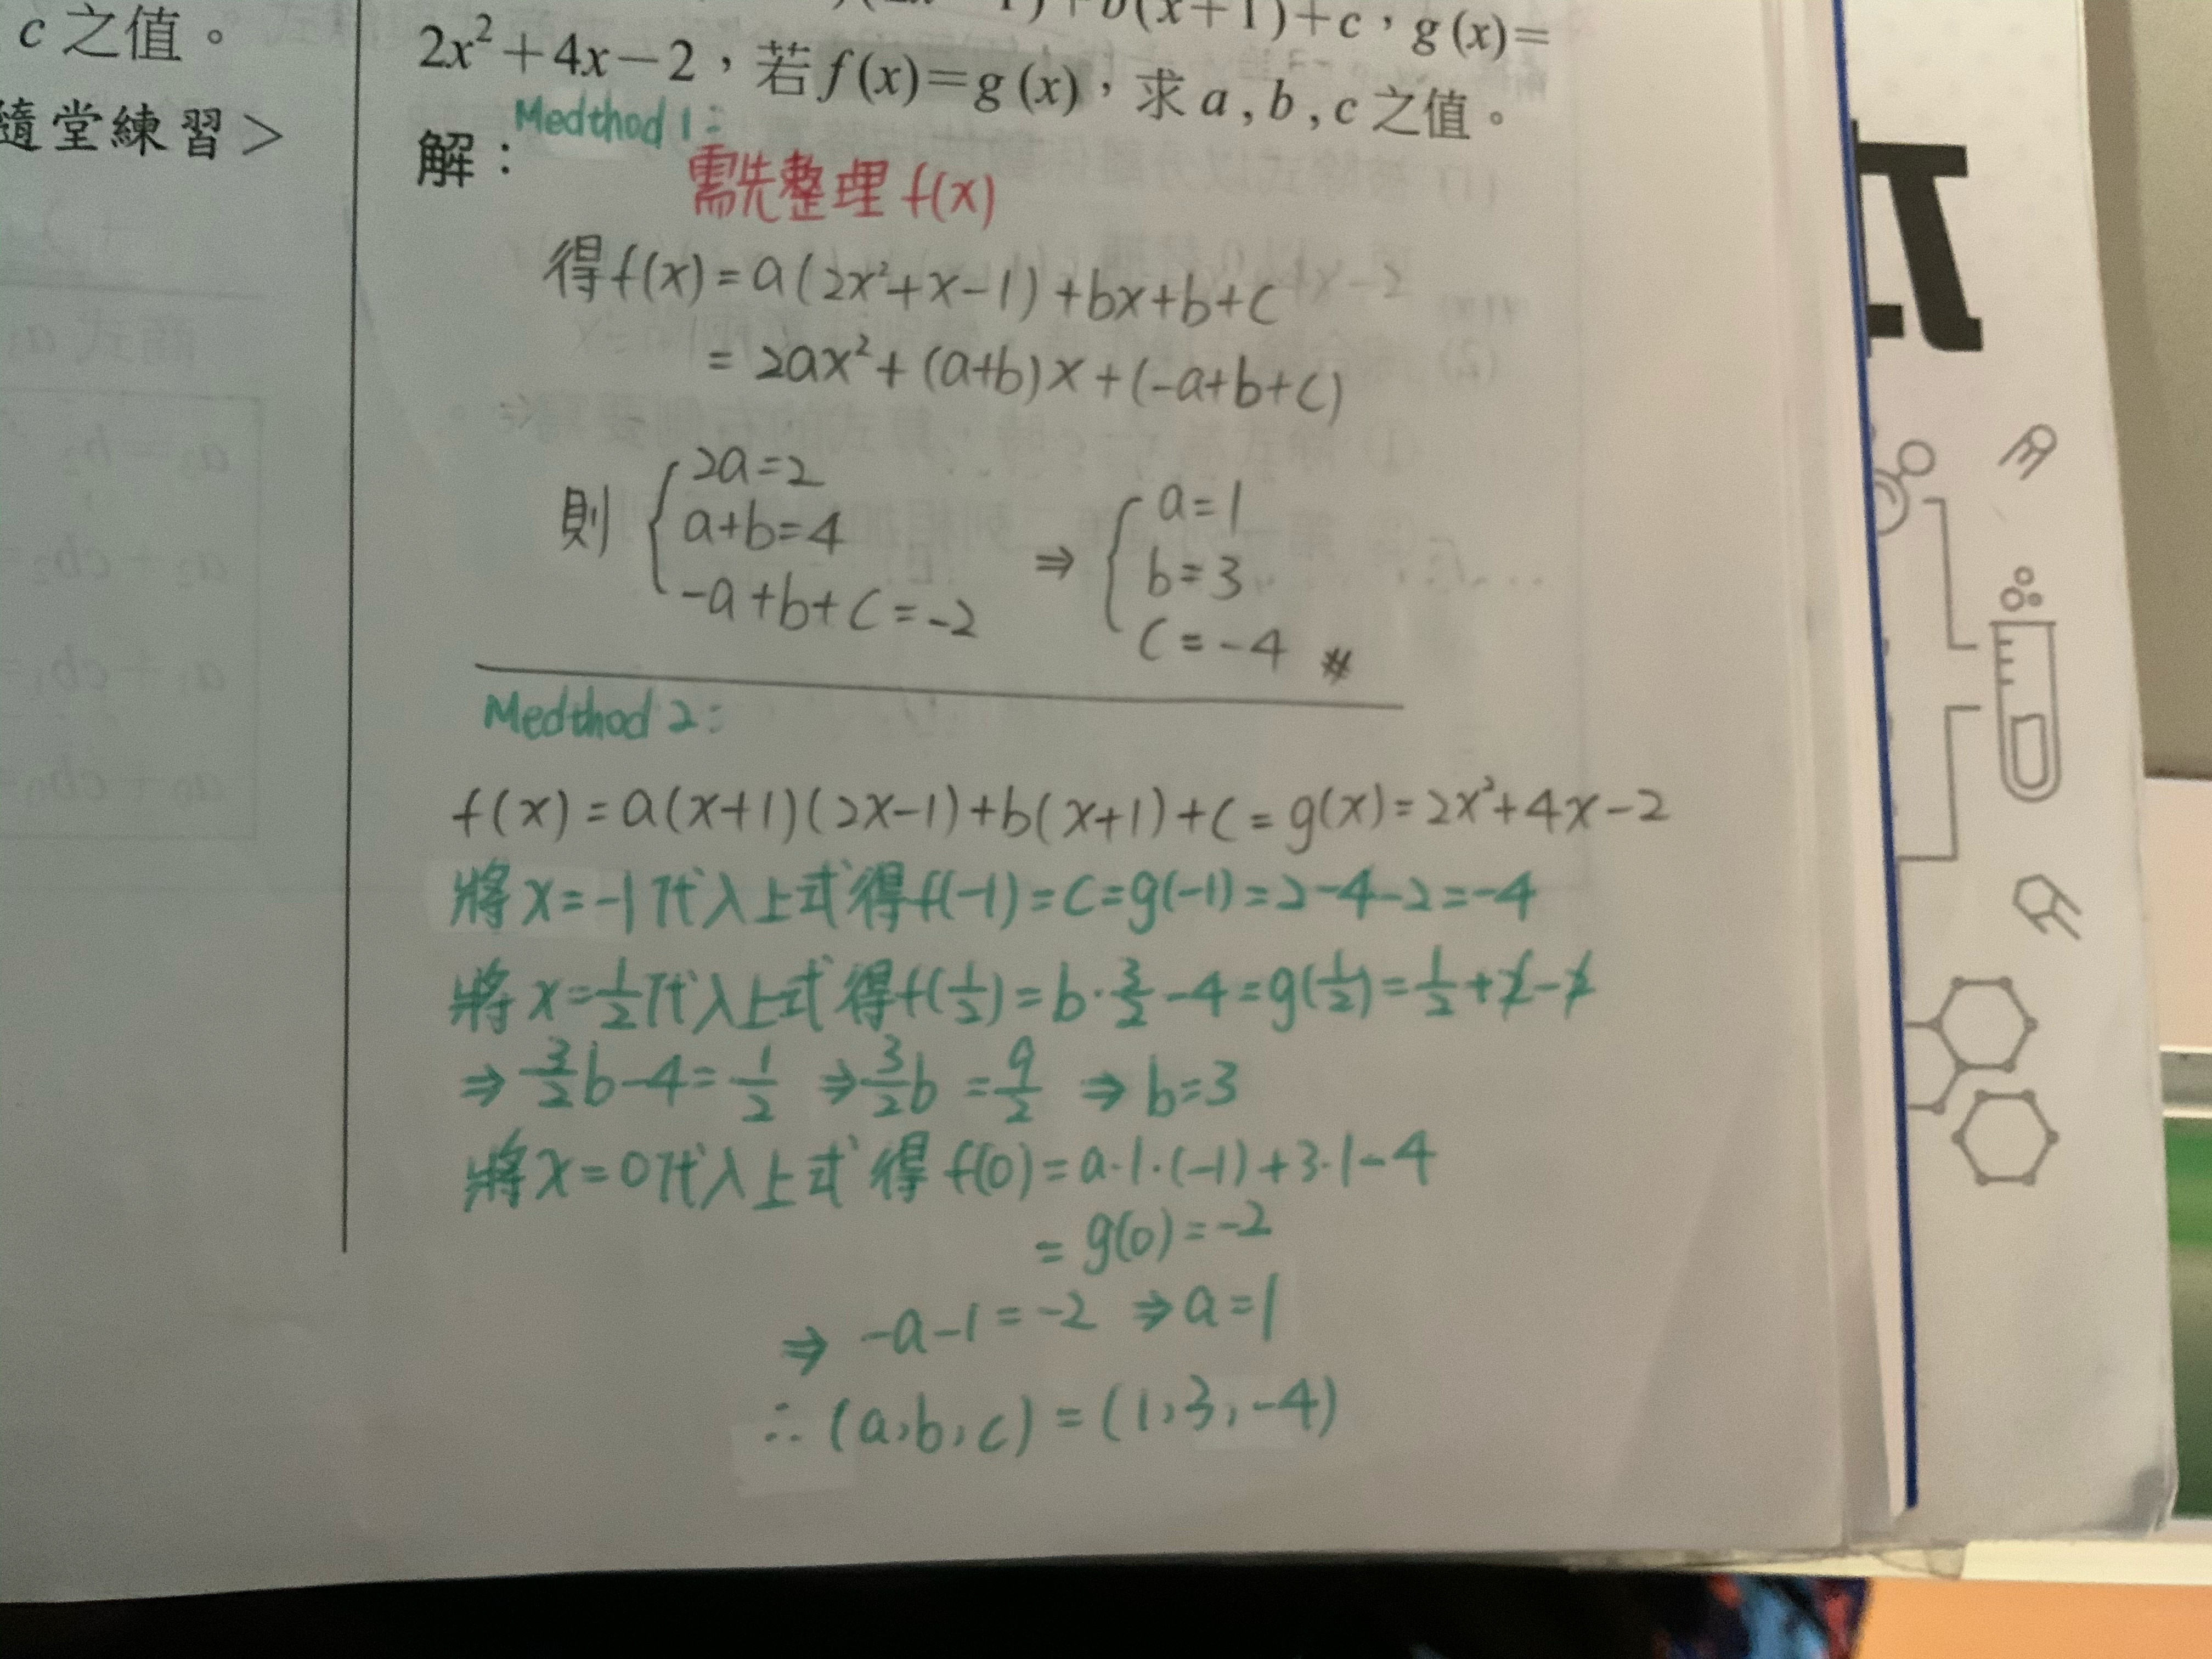 c 之值。
隨堂練習>
+b(x+1)+c，g(x)=
2x²+4x−2，若f(x)=g(x)，求a,b,c之值。
Medthod 1:
解：
需先整理 f(x)
得f(x)=a(2x²+x-1)+bx+b+c
=2ax²+(a+b)x+(-a+b+c)
則 { 2a=2
a+b=4
-a+b+c=-2
⇒ { a=1
b=3
c=-4 #
Medthod 2:
f(x)=a(x+1)(2x-1)+b(x+1)+c=g(x)=2x²+4x-2
將x=-1代入上式得f(-1)=c=g(-1)=2-4-2=-4
將x=1/2代入上式得f(1/2)=b·3/2-4=g(1/2)=1/2+2-2
⇒3/2b-4=1/2 ⇒3/2b=9/2 ⇒b=3
將x=0代入上式得f(0)=a·1·(-1)+3·1-4
=g(0)=-2
⇒ -a-1=-2 ⇒a=1
∴(a,b,c)=(1,3,-4)